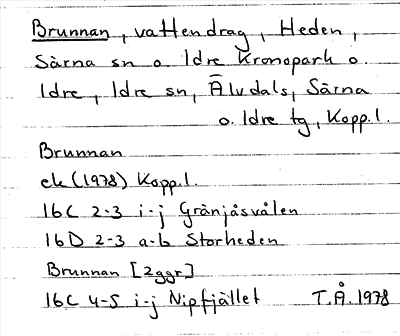 Brunnan, vattendrag, Heden,
Särna sn o. Idre Kronopark o.
Idre, Idre sn, Älvdals, Särna
o. Idre tg, Kopp.l.
Brunnan
ek (1978) Kopp.l.
16C 2-3 i-j Gränjåsvålen
16D 2-3 a-b Storheden
Brunnan [2ggr]
16C 4-5 i-j Nipfjället T.Å. 1978